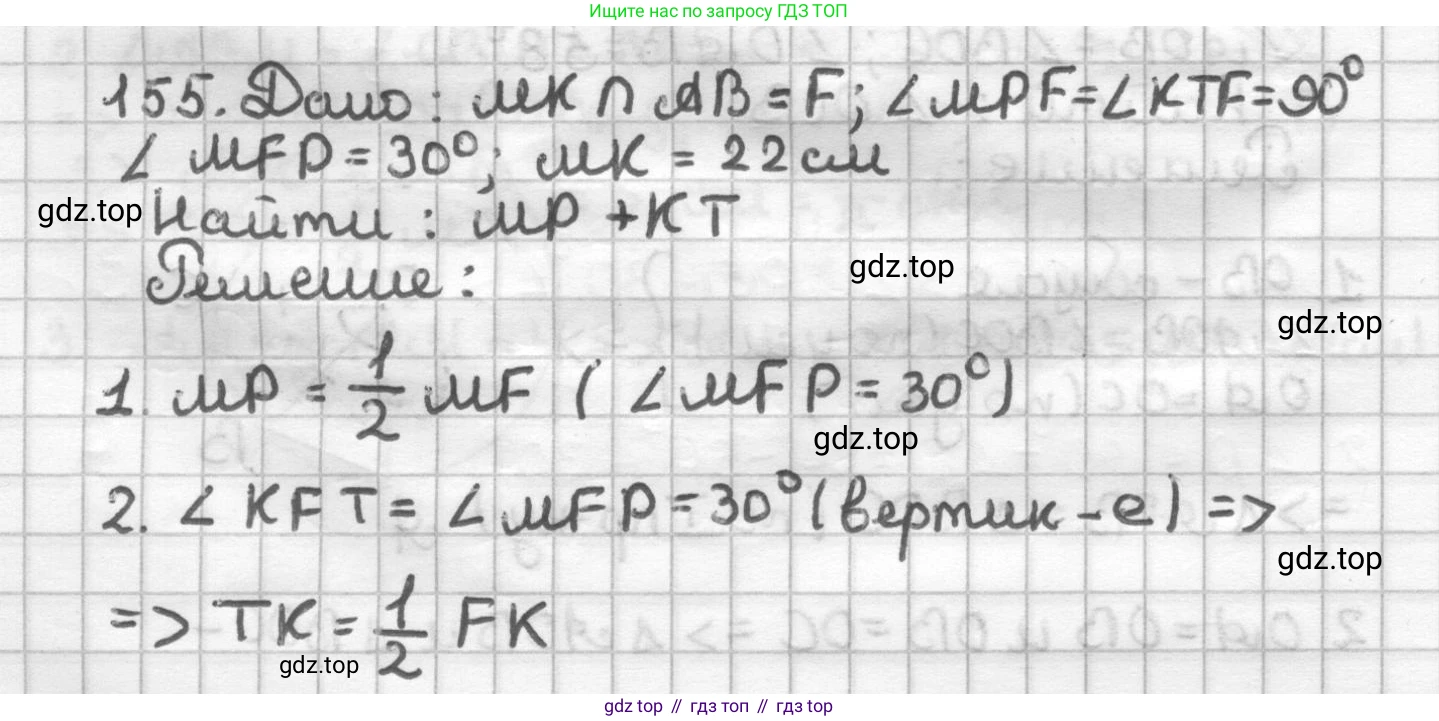 Ищите нас по запросу ГДЗ ТОП
155. Дано: MK ∩ AB = F; ∠MPF = ∠KTF = 90°
∠MFP = 30°; MK = 22 см
gdz.top
Найти: MP + KT
gdz.top
Решение:
gdz.top
1. MP = 1/2 MF (∠MFP = 30°)
gdz.top
2. ∠KFT = ∠MFP = 30° (вертик-е) =>
gdz.top
=> TK = 1/2 FK
gdz.top
gdz top // гдз топ // гдз top